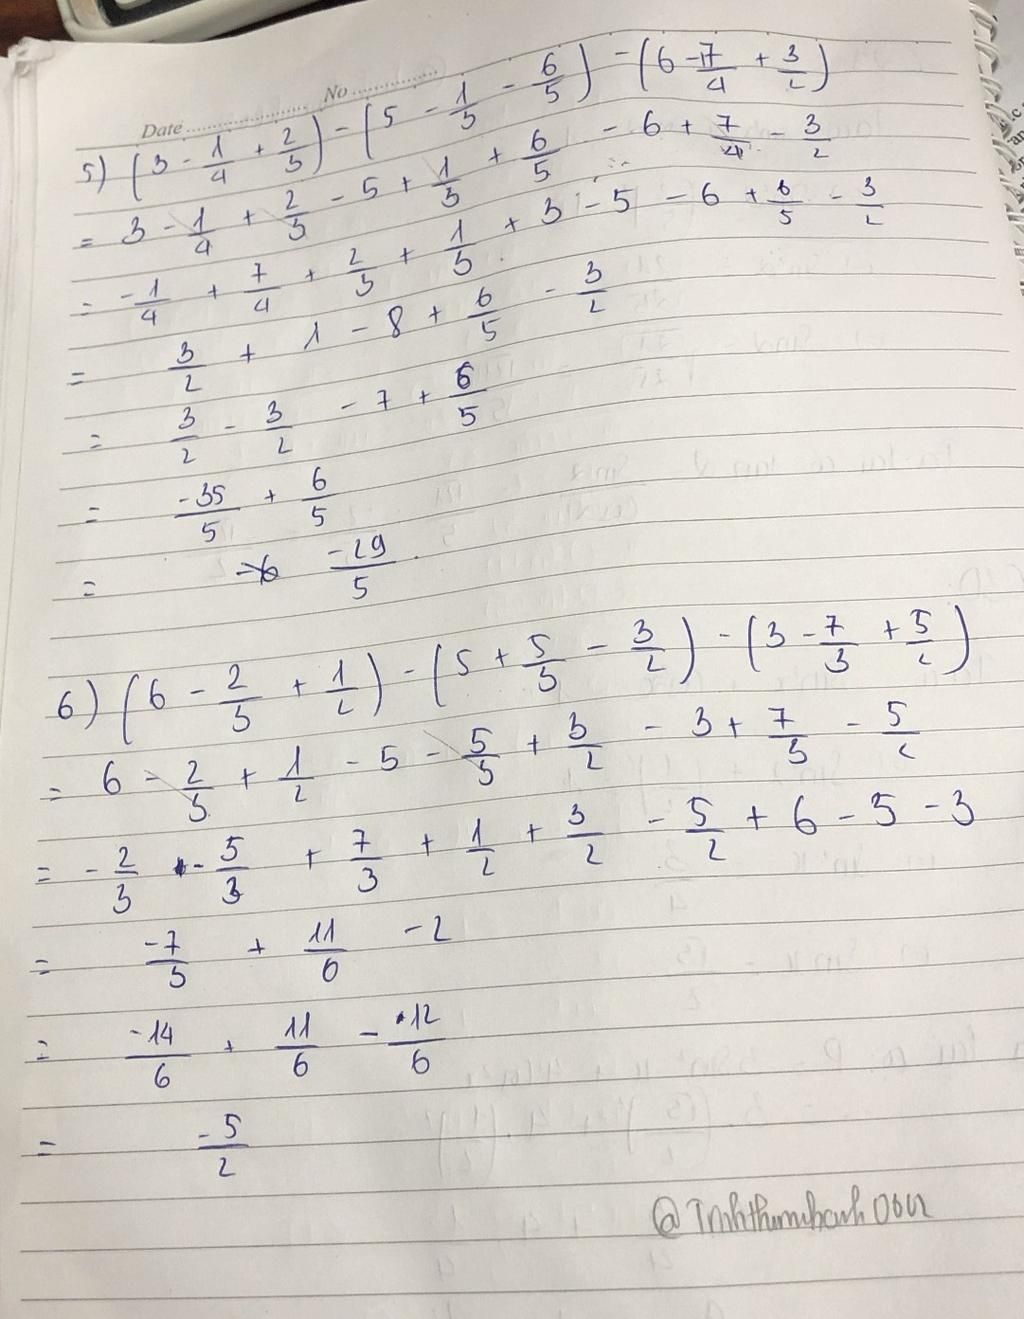 Date ........ No ........
5) (3 - 1/4 + 2/3) - (5 - 1/3 - 6/5) - (6 - 7/4 + 3/2)
= 3 - 1/4 + 2/3 - 5 + 1/3 + 6/5 - 6 + 7/4 - 3/2
= -1/4 + 7/4 + 2/3 + 1/3 + 3 - 5 - 6 + 6/5 - 3/2
= 3/2 + 1 - 8 + 6/5 - 3/2
= 3/2 - 3/2 - 7 + 6/5
= -35/5 + 6/5
= -29/5
6) (6 - 2/3 + 1/2) - (5 + 5/3 - 3/2) - (3 - 7/3 + 5/2)
= 6 - 2/3 + 1/2 - 5 - 5/3 + 3/2 - 3 + 7/3 - 5/2
= -2/3 - 5/3 + 7/3 + 1/2 + 3/2 - 5/2 + 6 - 5 - 3
= -7/3 + 11/6 - 2
= -14/6 + 11/6 - 12/6
= -5/2